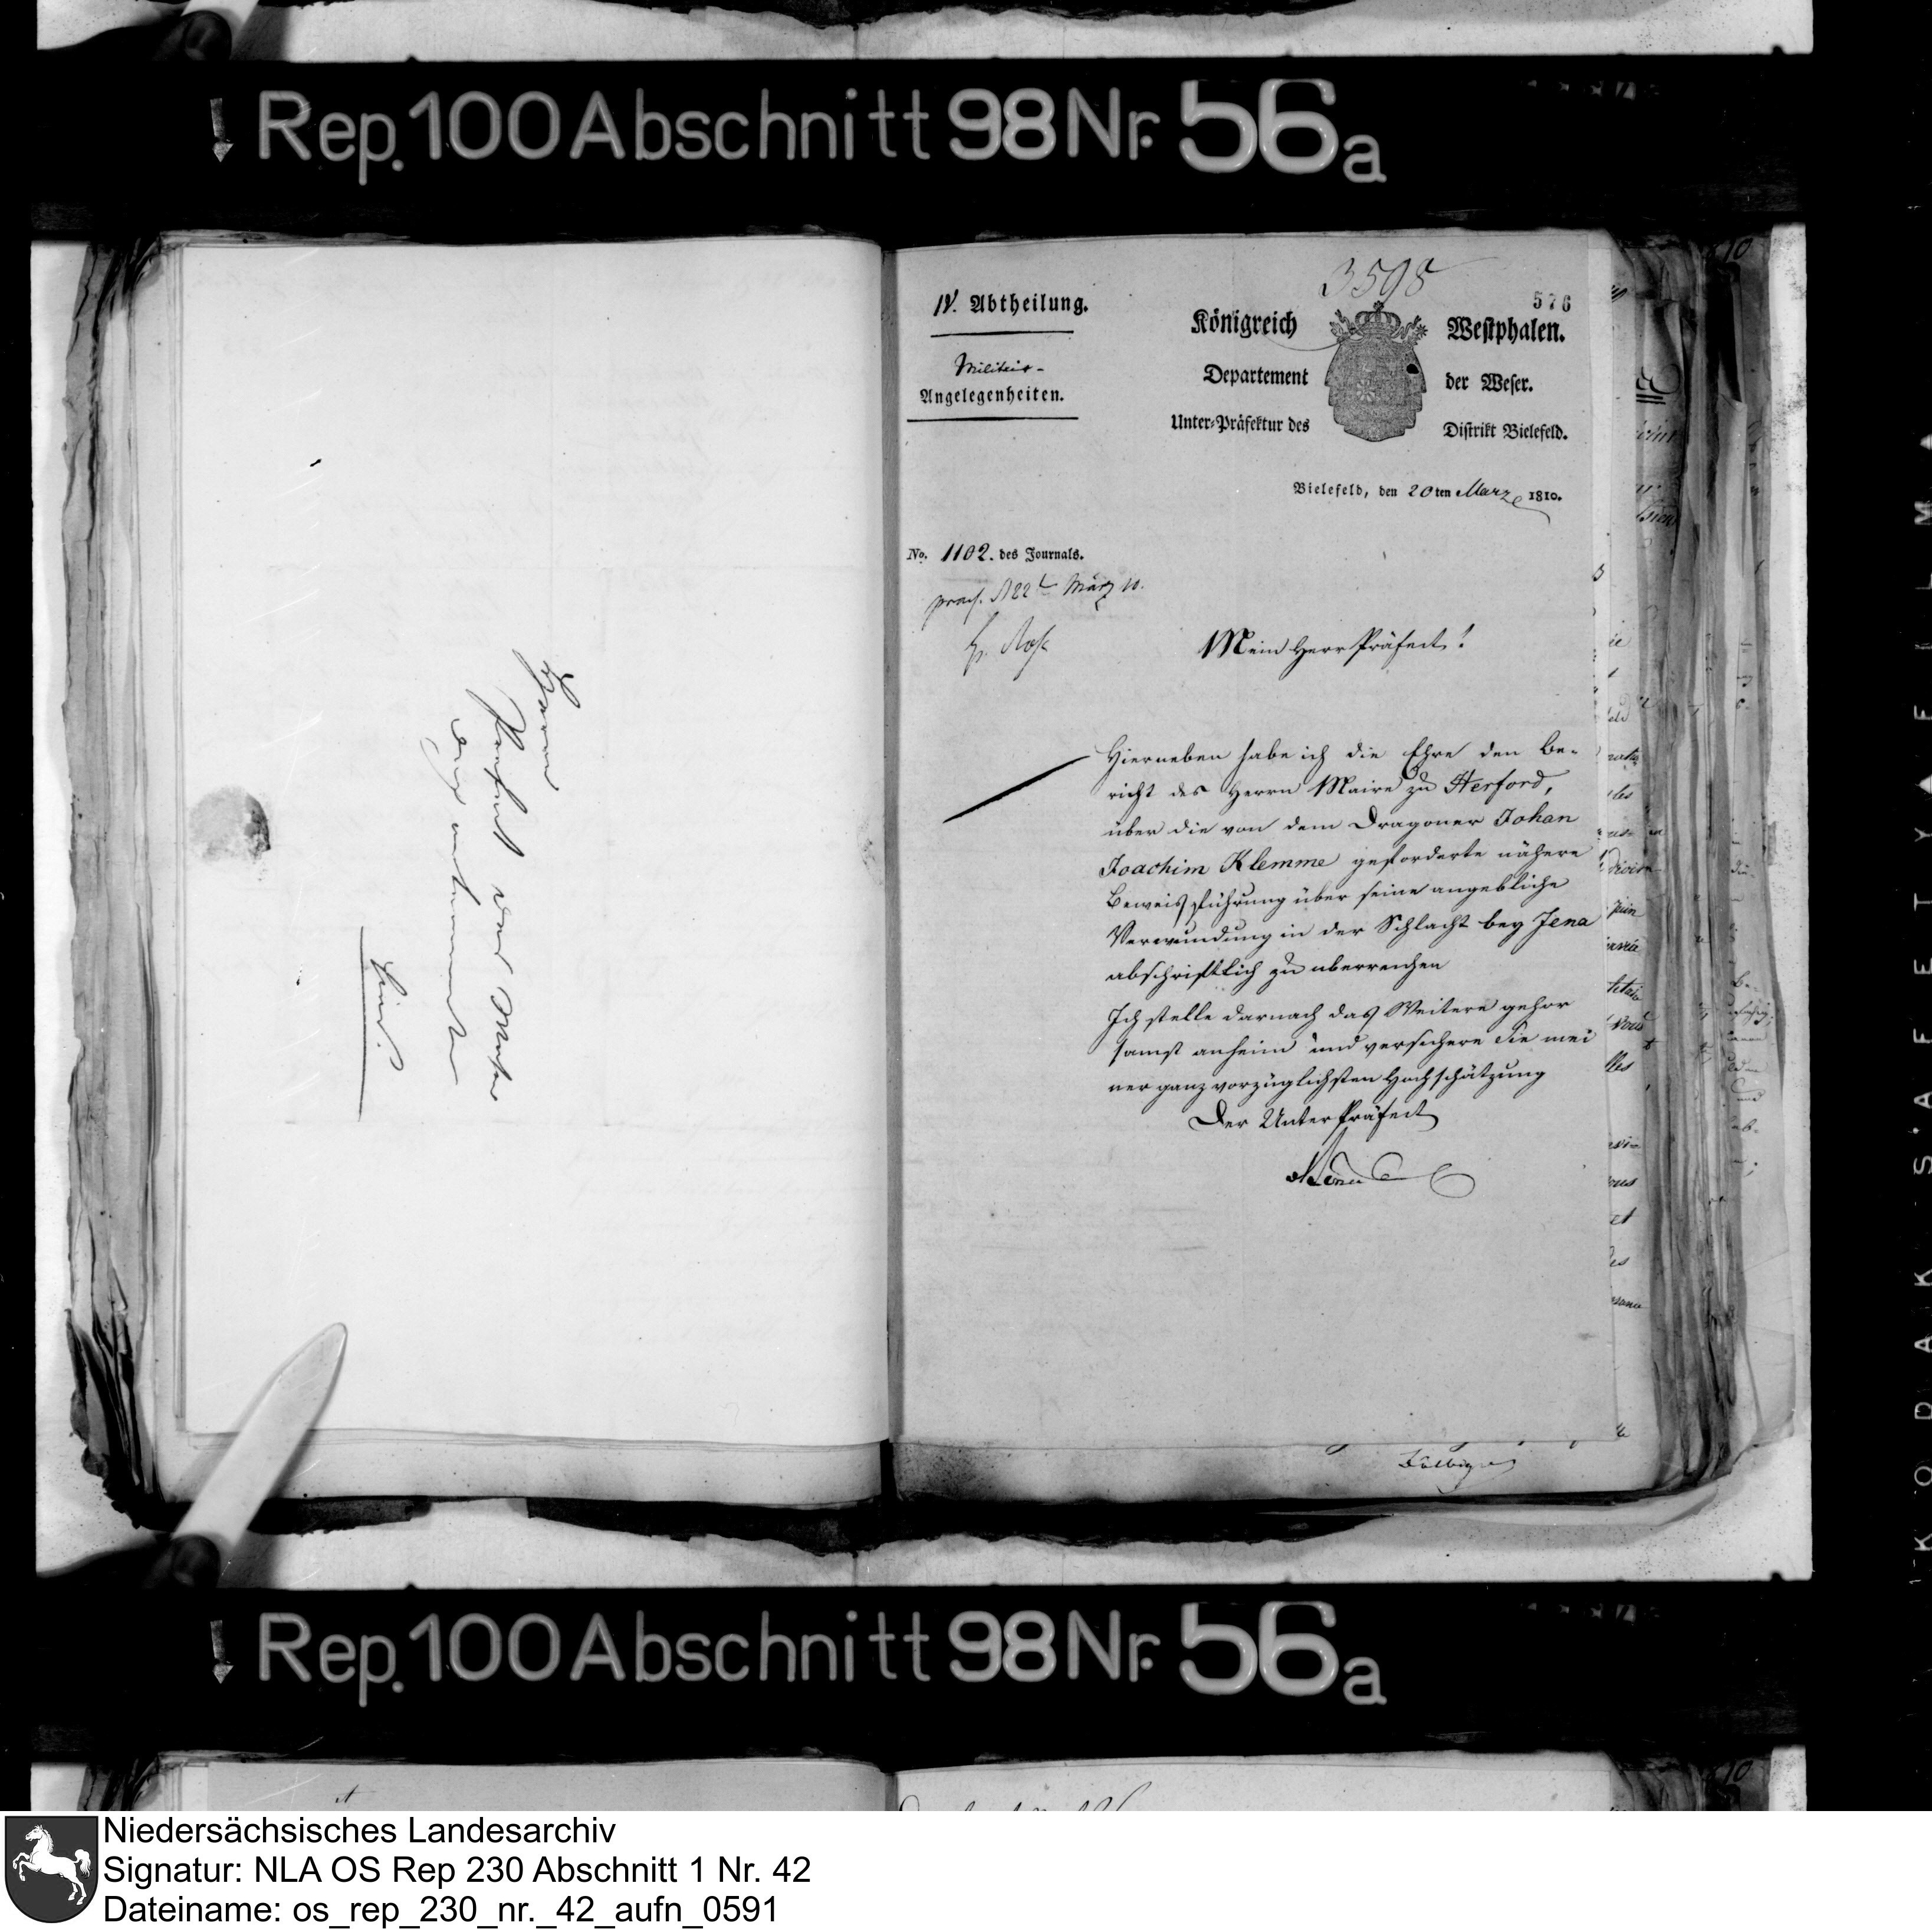 Rep. 100 Abschnitt 98 Nr. 56a
3598
576
IV. Abtheilung.
Militair-
Angelegenheiten.
Königreich Westphalen.
Departement der Weser.
Unter-Präfektur des Distrikt Bielefeld.
Bielefeld, den 20ten Marz 1810.
No. 1102. des Journals.
März 10.
Mein Herr Präfect!
Hierneben habe ich die Ehre den Be-
richt des Herrn Maire zu Herford,
über die von dem Dragoner Johan
Joachim Klemme geforderte nähere
Beweisführung über seine angebliche
Verwundung in der Schlacht bey Jena
abschriftlich zu uberreichen
Ich stelle darnach das Weitere gehor
samst anheim und versichere Sie mei
ner ganz vorzüglichsten Hochschätzung
Der Unter Präfect
Rep. 100 Abschnitt 98 Nr. 56a
KODAK SAFETY FILM
Niedersächsisches Landesarchiv
Signatur: NLA OS Rep 230 Abschnitt 1 Nr. 42
Dateiname: os_rep_230_nr._42_aufn_0591